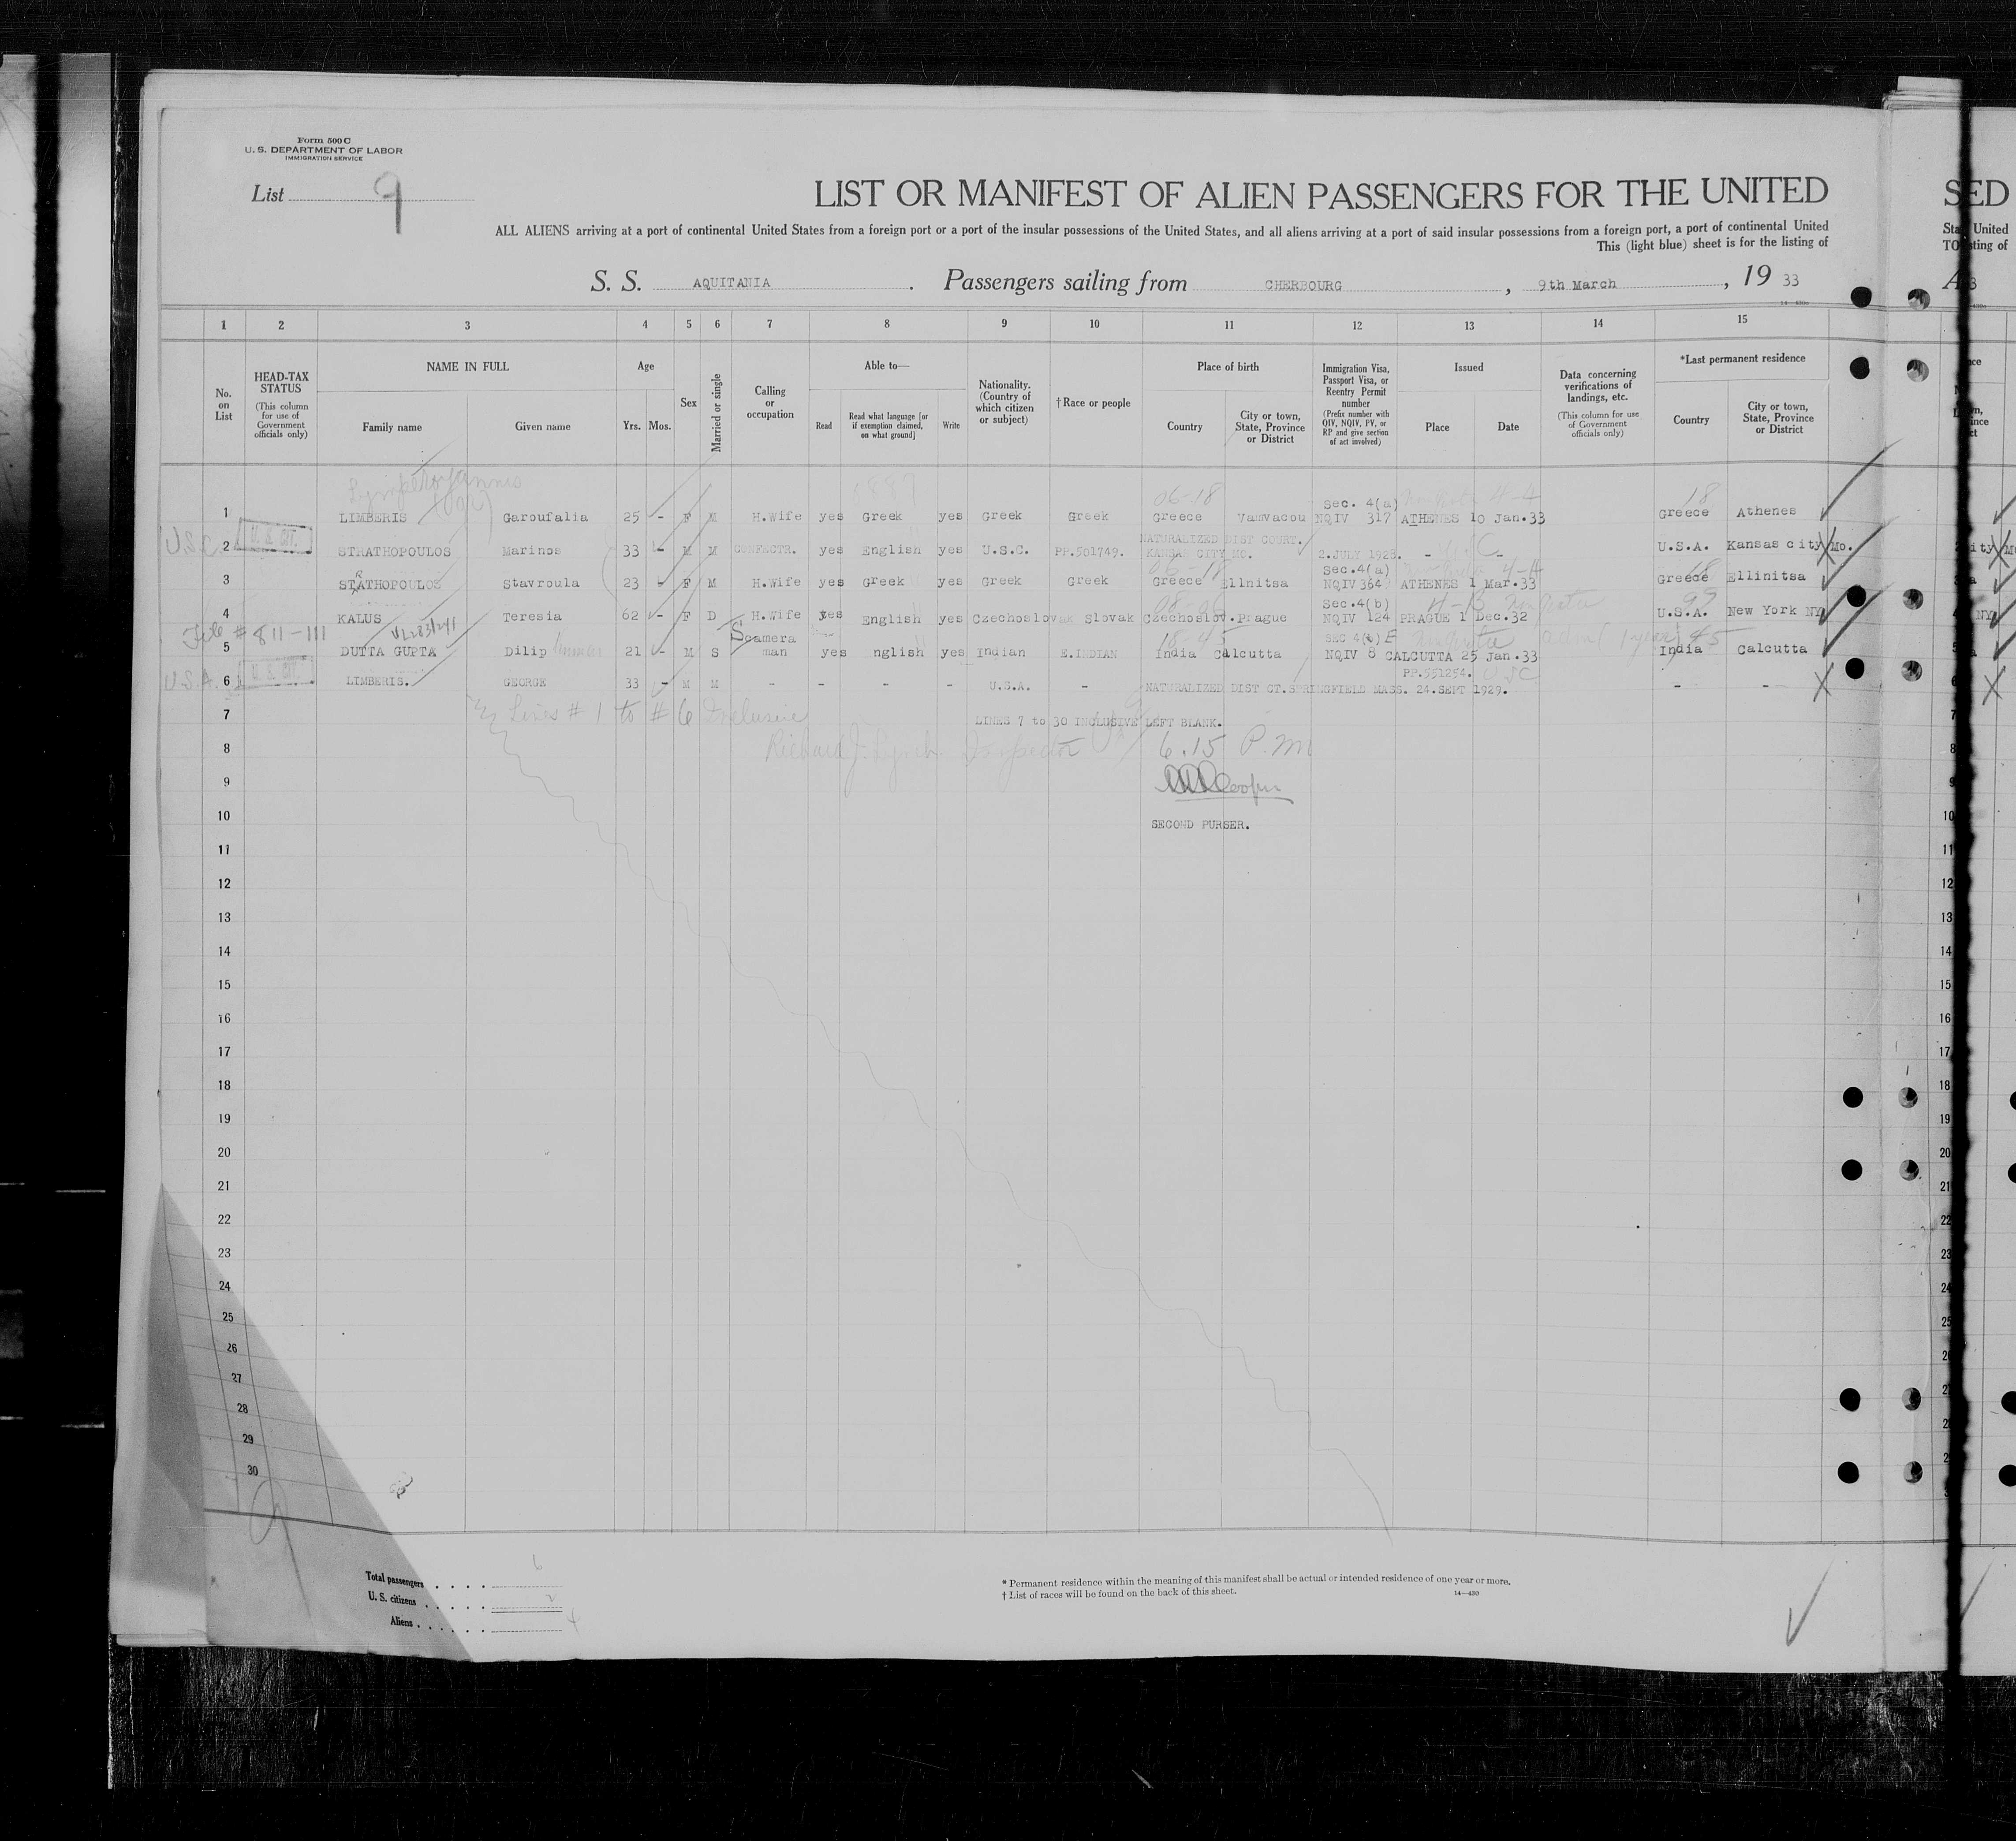 Form 500 C
U. S. DEPARTMENT OF LABOR
IMMIGRATION SERVICE
List 9
LIST OR MANIFEST OF ALIEN PASSENGERS FOR THE UNITED
ALL ALIENS arriving at a port of continental United States from a foreign port or a port of the insular possessions of the United States, and all aliens arriving at a port of said insular possessions from a foreign port, a port of continental United
This (light blue) sheet is for the listing of
S. S. AQUITANIA . Passengers sailing from CHERBOURG , 9th March , 19 33
1 2 3 4 5 6 7 8 9 10 11 12 13 14 15
No. on List
HEAD-TAX STATUS (This column for use of Government officials only)
NAME IN FULL
Family name Given name
Age
Yrs. Mos.
Sex
Married or single
Calling or occupation
Able to—
Read Read what language [or if exemption claimed, on what ground] Write
Nationality. (Country of which citizen or subject)
† Race or people
Place of birth
Country City or town, State, Province or District
Immigration Visa, Passport Visa, or Reentry Permit number (Prefix number with QIV, NQIV, PV, or RP and give section of act involved)
Issued
Place Date
Data concerning verifications of landings, etc. (This column for use of Government officials only)
*Last permanent residence
Country City or town, State, Province or District
06-18 Sec. 4(a) 4-4 18
1 LIMBERIS Garoufalia 25 - F M H.Wife yes Greek yes Greek Greek Greece Vamvacou NQIV 317 ATHENES 10 Jan.33 Greece Athenes
NATURALIZED DIST COURT.
U.S.C. U. S. CIT. 2 STRATHOPOULOS Marinos 33 - M M CONFECTR. yes English yes U.S.C. PP.561749. KANSAS CITY MO. 2.JULY 1928. - USC - U.S.A. Kansas city Mo.
06-18 Sec.4(a) 4-4 18
3 STATHOPOULOS Stavroula 23 - F M H.Wife yes Greek yes Greek Greek Greece Ellnitsa NQIV 364 ATHENES 1 Mar.33 Greece Ellinitsa
Sec.4(b) 4-B 99
4 KALUS Teresia 62 - F D H.Wife yes English yes Czechoslovak Slovak Czechoslov.Prague NQIV 124 PRAGUE 1 Dec.32 U.S.A. New York NY
File # 811-111 Scamera SEC 4(b) E adm 1 year 45
5 DUTTA GUPTA Dilip 21 - M S man yes nglish yes Indian E.INDIAN India Calcutta NQIV 8 CALCUTTA 25 Jan.33 India Calcutta
PP.551254. USC
U.S.A. U. S. CIT. 6 LIMBERIS. GEORGE 33 - M M - - - - U.S.A. - NATURALIZED DIST CT.SPRINGFIELD MASS. 24.SEPT 1929. - -
7 Lines # 1 to # 6 Inclusive LINES 7 to 30 INCLUSIVE LEFT BLANK.
8 Richard J. Lynch Inspector 6.15 P.m
9 Cooper
10 SECOND PURSER.
11
12
13
14
15
16
17
18
19
20
21
22
23
24
25
26
27
28
29
30
9
Total passengers 6
U. S. citizens 2
Aliens 4
* Permanent residence within the meaning of this manifest shall be actual or intended residence of one year or more.
† List of races will be found on the back of this sheet.
14—430